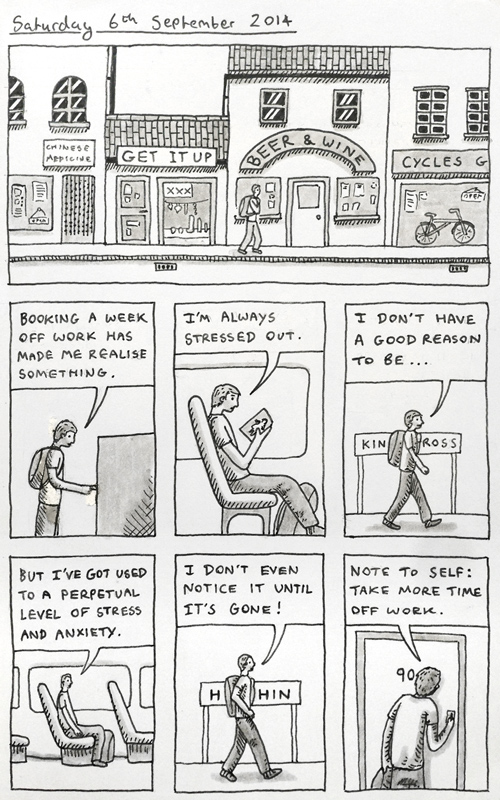 Saturday 6th September 2014
CHINESE
MEDICINE
GET IT UP
XXX
BEER & WINE
CYCLES G
OPEN
OPEN
BOOKING A WEEK
OFF WORK HAS
MADE ME REALISE
SOMETHING.
I'M ALWAYS
STRESSED OUT.
I DON'T HAVE
A GOOD REASON
TO BE...
KIN ROSS
BUT I'VE GOT USED
TO A PERPETUAL
LEVEL OF STRESS
AND ANXIETY.
I DON'T EVEN
NOTICE IT UNTIL
IT'S GONE!
H HIN
NOTE TO SELF:
TAKE MORE TIME
OFF WORK.
90